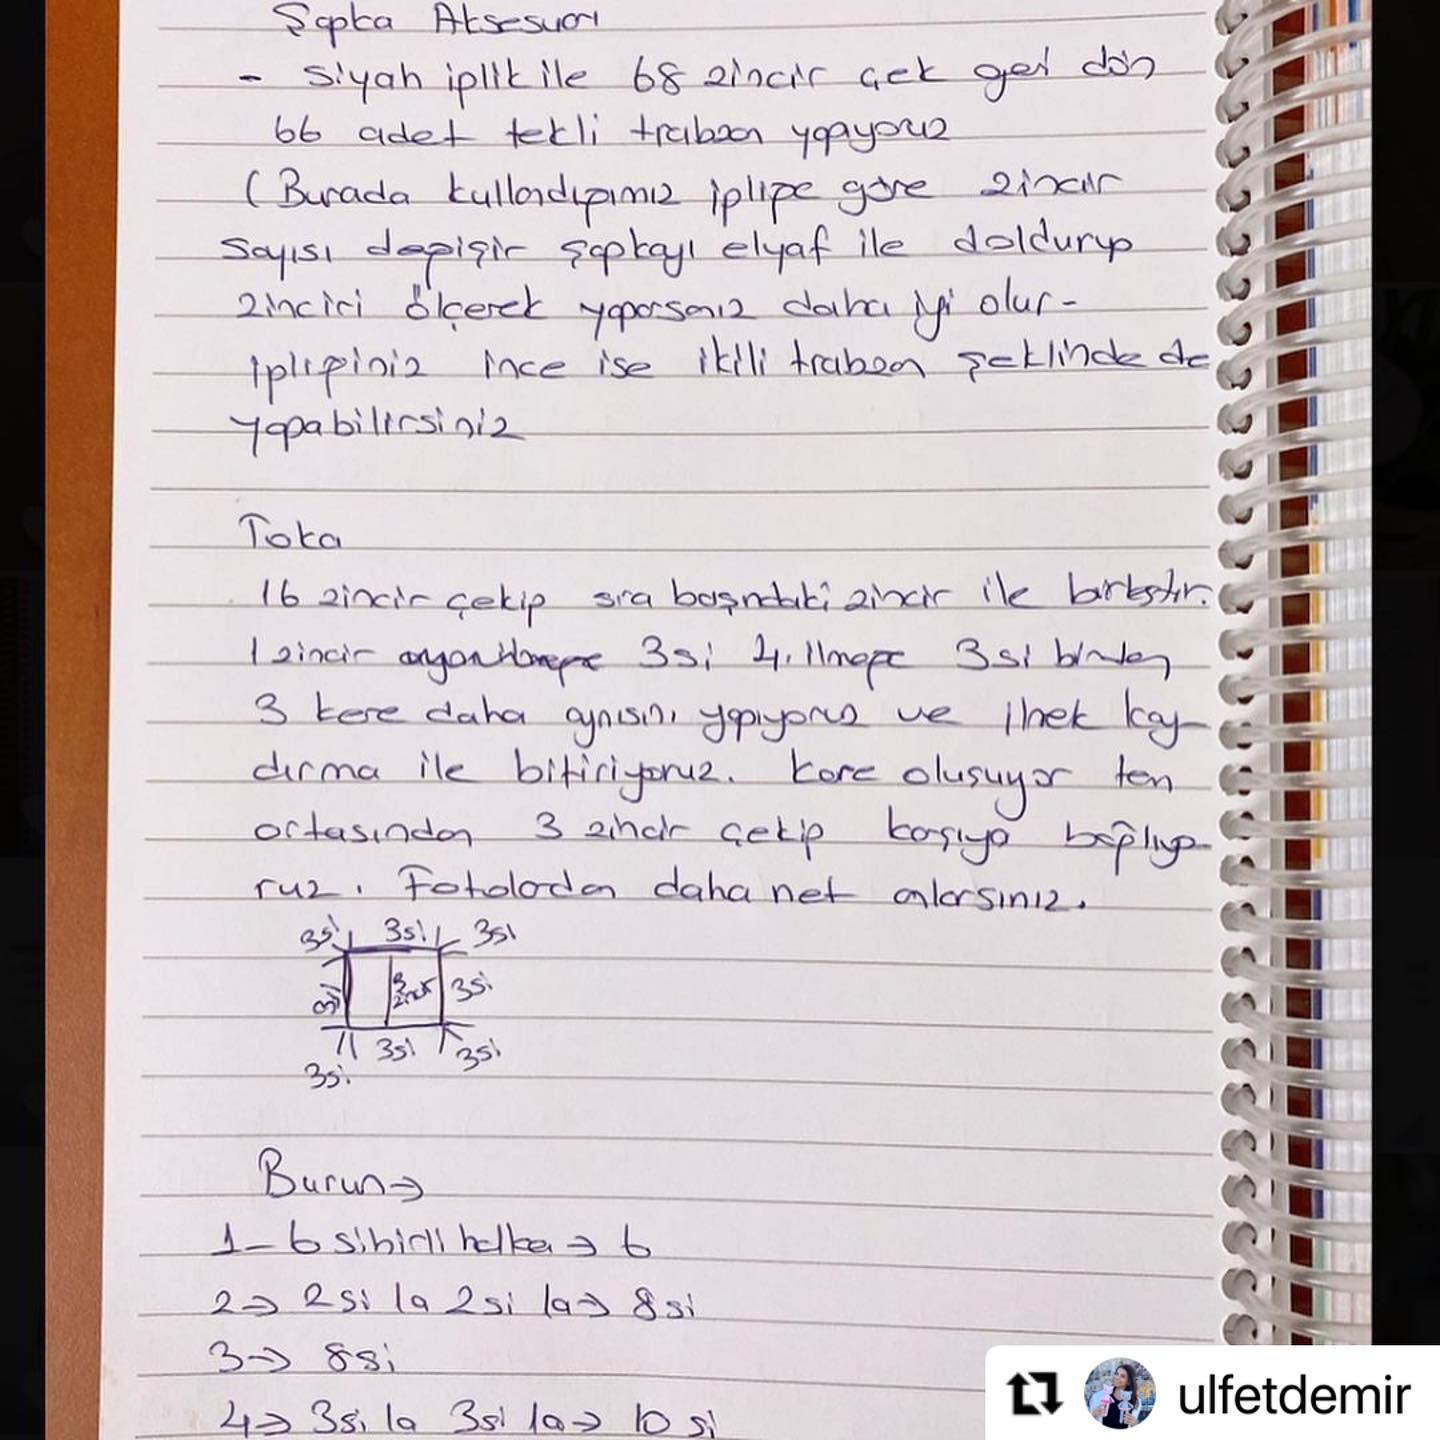 Şapka Aksesuarı
- Siyah iplik ile 68 zincir çek geri dön
66 adet tekli trabzan yapıyoruz
(Burada kullandığımız ipliğe göre zincir
sayısı değişir şapkayı elyaf ile doldurup
zinciri ölçerek yaparsanız daha iyi olur-
ipliğiniz ince ise ikili trabzan şeklinde de
yapabilirsiniz
Toka
16 zincir çekip sıra başındaki zincir ile birleştir.
1 zincir 3si 4. ilmeğe 3si birden
3 kere daha aynısını yapıyoruz ve ilmek kay-
dırma ile bitiriyoruz. Kare oluşuyor tam
ortasından 3 zincir çekip karşıya bağlıyo-
ruz. Fotolardan daha net anlarsınız.
3si 3si 3si
3si 3 zincir 3si
3si 3si
3si
Burun→
1- 6 sihirli halka → 6
2→ 2si 1a 2si 1a→ 8si
3→ 8si
4→ 3si 1a 3si 1a→ 10 si
ulfetdemir